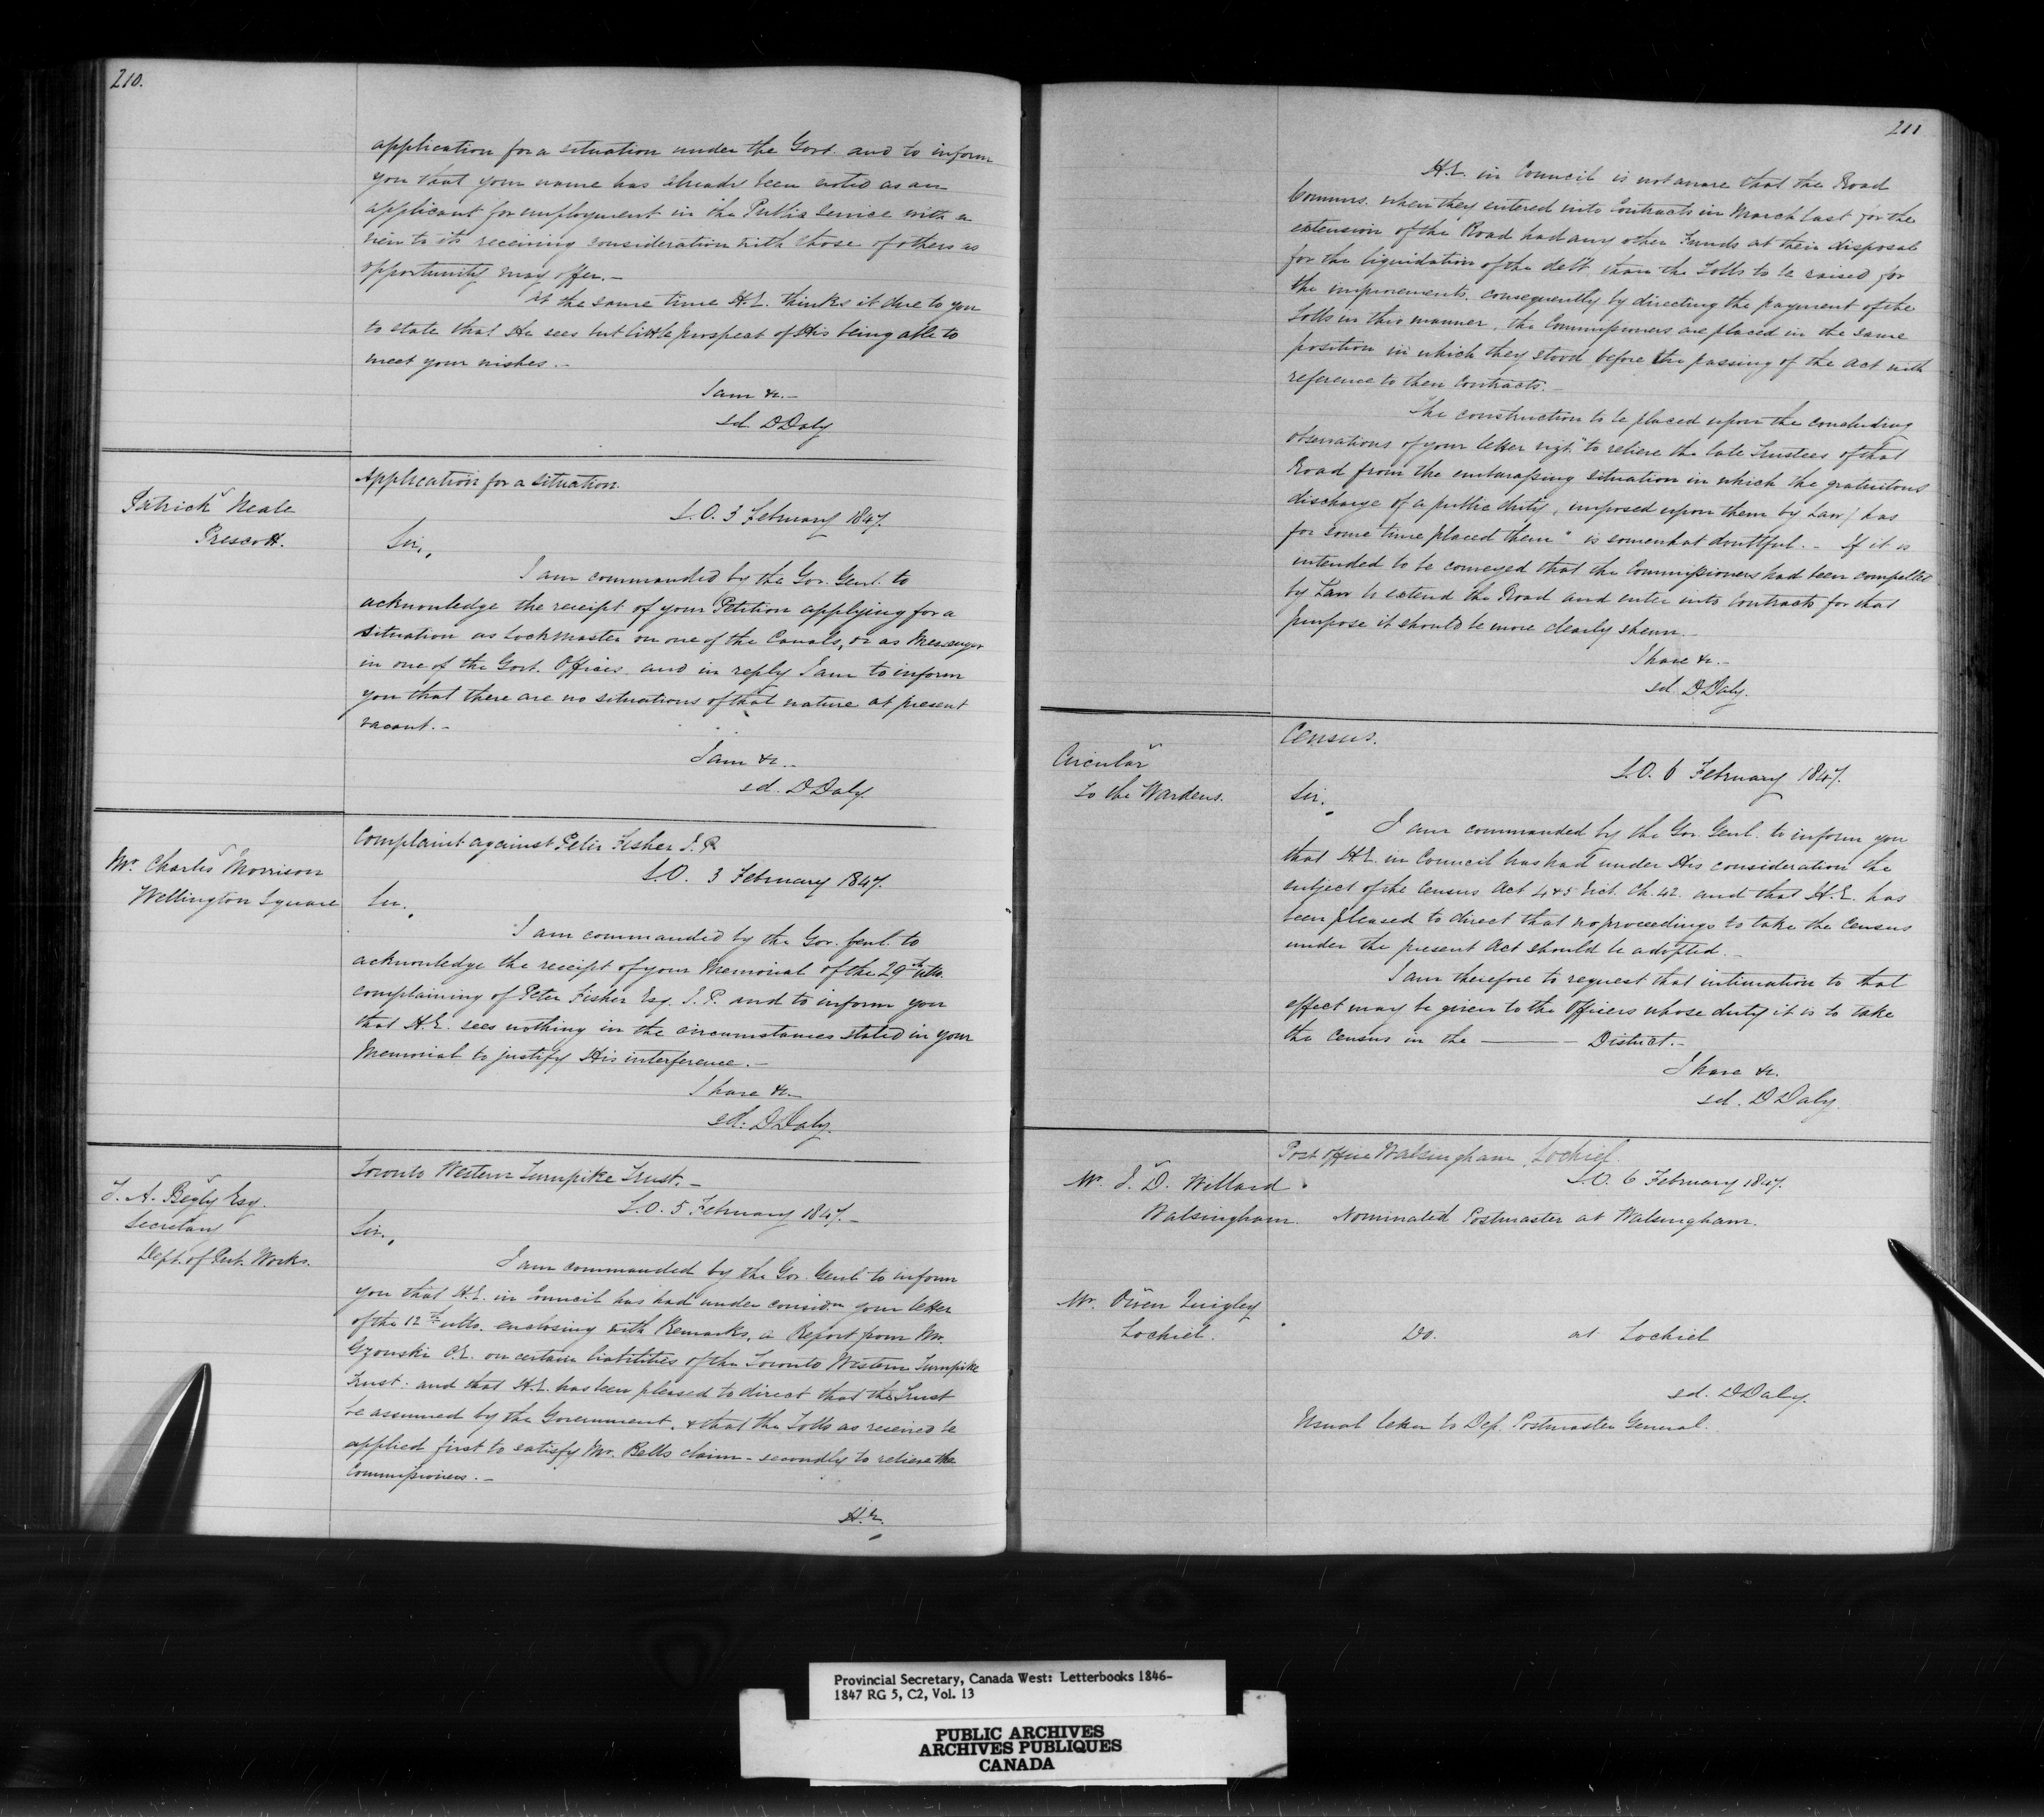 210.
application for a situation under the Govt. and to inform
you that your name has already been noted as an
applicant for employment in the Public Service with a
view to its receiving consideration with those of others as
opportunity may offer. –
At the same time H.E. thinks it due to you
to state that He sees but little prospect of His being able to
meet your wishes. –
I am &c. –
sd. D Daly.
Patrick Neale
Prescott.
Application for a situation.
S.O. 3 February 1847.
Sir,
I am commanded by the Gov. Genl. to
acknowledge the receipt of your Petition applying for a
situation as Lockmaster on one of the Canals, or as Messenger
in one of the Govt. Offices and in reply I am to inform
you that there are no situations of that nature at present
vacant. –
I am &c. –
sd. D Daly.
Mr. Charles Morrison
Wellington Square
Complaint against Peter Fisher J.P.
S.O. 3 February 1847.
Sir,
I am commanded by the Gov. Genl. to
acknowledge the receipt of your Memorial of the 29th ulto.
complaining of Peter Fisher Esq. J.P. and to inform you
that H.E. sees nothing in the circumstances stated in your
Memorial to justify His interference. –
I have &c.
sd. D Daly.
T. A. Begly Esq.
Secretary
Dept. of Pub. Works.
Toronto Western Turnpike Trust. –
S.O. 5 February 1847. –
Sir,
I am commanded by the Gov. Genl. to inform
you that H.E. in Council has had under considn. your letter
of the 12th ulto. enclosing with Remarks, a Report from Mr.
Gzowski C.E. on certain liabilities of the Toronto Western Turnpike
Trust. and that H.E. has been pleased to direct that the Trust
be assumed by the Government, & that the Tolls as received be
applied first to satisfy Mr. Bells claim – secondly to relieve the
Commissioners. –
H.E.
211
H.E. in Council is not aware that the Road
Commrs. when they entered into Contracts in March last for the
extension of the Road had any other Funds at their disposal
for the liquidation of the debt than the Tolls to be raised for
the improvements, consequently by directing the payment of the
Tolls in this manner, the Commissioners are placed in the same
position in which they stood before the passing of the Act with
reference to their Contracts. –
The construction to be placed upon the concluding
observations of your letter vizt. "to relieve the late Trustees of that
Road from the embarassing situation in which the gratuitous
discharge of a public duty, imposed upon them by Law, has
for some time placed them" is somewhat doubtful. – If it is
intended to be conveyed that the Commissioners had been compelled
by Law to extend the Road and enter into Contracts for that
purpose it should be more clearly shewn. –
I have &c. –
sd. D Daly.
Circular
to the Wardens.
Census.
S.O. 6 February 1847.
Sir,
I am commanded by the Gov. Genl. to inform you
that H.E. in Council has had under His consideration the
subject of the Census Act 4 & 5 Vict. Ch. 42. and that H.E. has
been pleased to direct that no proceedings to take the Census
under the present Act should be adopted. –
I am therefore to request that intimation to that
effect may be given to the Officers whose duty it is to take
the Census in the ——— District. –
I have &c.
sd. D Daly.
Post Office Walsingham, Lochiel
S.O. 6 February 1847.
Mr. J. D. Willard
Walsingham. Nominated Postmaster at Walsingham.
Mr. Owen Quigley
Lochiel. Do. at Lochiel
sd. D Daly.
Usual letter to Dep. Postmaster General.
Provincial Secretary, Canada West: Letterbooks 1846-
1847 RG 5, C2, Vol. 13
PUBLIC ARCHIVES
ARCHIVES PUBLIQUES
CANADA